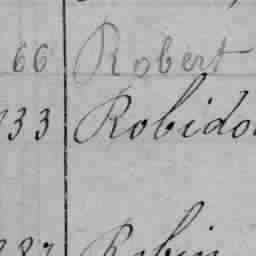 66 Robert
33 Robido
Robin